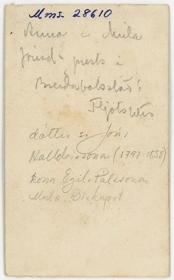 Mms. 28610
Anna í Múla
frænd- prests í
Breiðabólsstað í
Fljótshlíð
dóttir sr. Jóns
Halldórssonar (1797-1858)
kona Egils Pálssonar
Múla, Bisk.